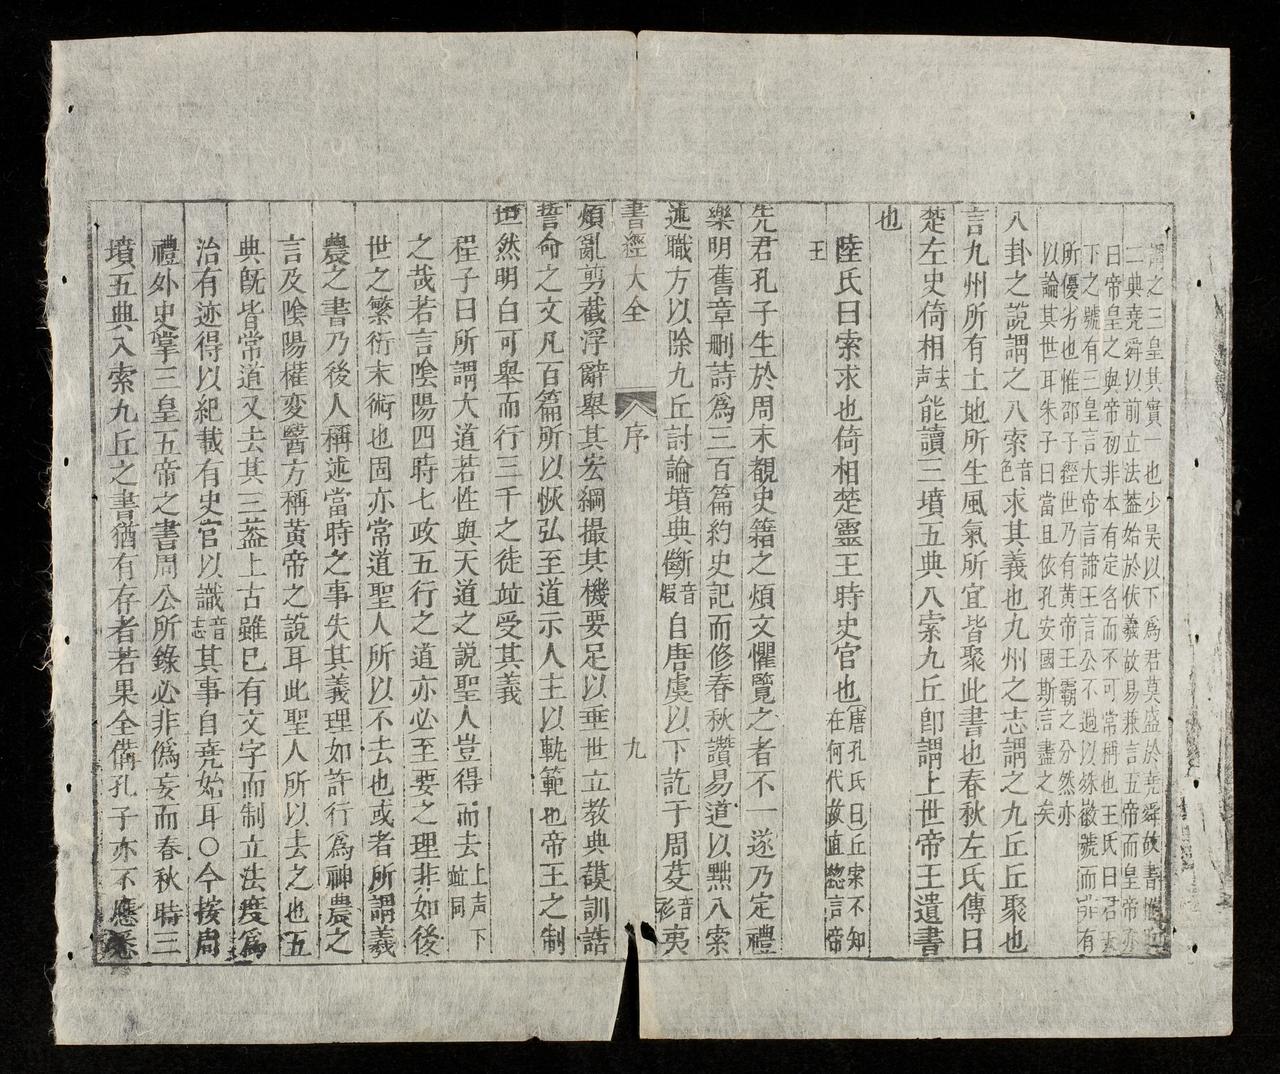 謂之三皇其實一也少昊以下爲君莫盛於堯舜故書惟
二典堯舜以前立法葢始於伏羲故易兼言五帝而皇帝亦
曰帝皇之與帝初非本有定名而不可常稱也王氏曰君天
下之號有三皇言大帝言諦王言公不過以殊徽號而非有
所優劣也惟邵子經世乃有黄帝王霸之分然亦
以論其世耳朱子曰當且依孔安國斯言盡之矣
八卦之說謂之八索音色求其義也九州之志謂之九丘丘聚也
言九州所有土地所生風氣所宜皆聚此書也春秋左氏傳曰
楚左史倚相去声能讀三墳五典八索九丘卽謂上世帝王遺書
也
陸氏曰索求也倚相楚靈王時史官也唐孔氏曰丘索不知在何代故直揔言帝
王
先君孔子生於周末覩史籍之煩文懼覽之者不一遂乃定禮
樂明舊章刪詩爲三百篇約史記而修春秋讃易道以黜八索
述職方以除九丘討論墳典斷音煅自唐虞以下訖于周芟音衫夷
書經大全 序 九
煩亂剪截浮辭舉其宏綱撮其機要足以垂世立教典謨訓誥
誓命之文凡百篇所以恢弘至道示人主以軌範也帝王之制
坦然明白可舉而行三千之徒竝受其義
程子曰所謂大道若性與天道之說聖人豈得而去上声下竝同
之哉若言陰陽四時七政五行之道亦必至要之理非如後
世之繁衍末術也固亦常道聖人所以不去也或者所謂羲
農之書乃後人稱述當時之事失其義理如許行爲神農之
言及陰陽權変醫方稱黃帝之說耳此聖人所以去之也五
典旣皆常道又去其三葢上古雖已有文字而制立法度爲
治有迹得以紀載有史官以識音志其事自堯始耳○今按周
禮外史掌三皇五帝之書周公所錄必非僞妄而春秋時三
墳五典入索九丘之書猶有存者若果全備孔子亦不應悉